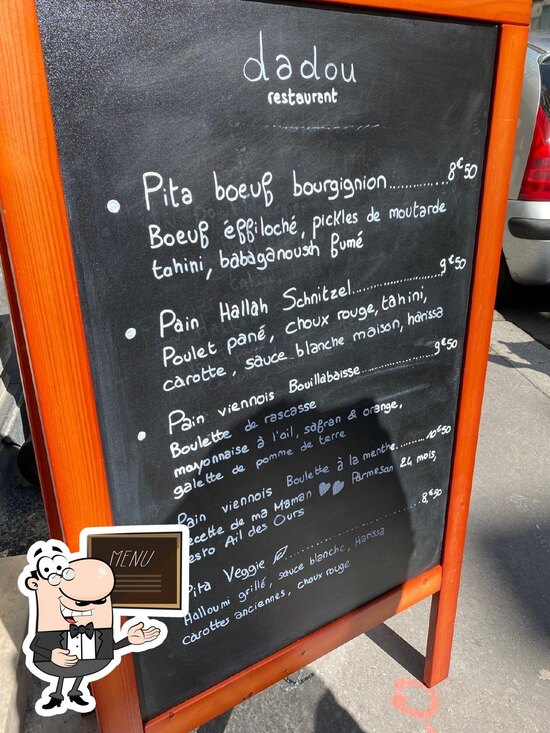 dadou
restaurant
Pita boeuf bourgignion.............. 8€50
Boeuf éffiloché, pickles de moutarde
tahini, babaganoush fumé
Pain Hallah Schnitzel...................... 9€50
Poulet pané, choux rouge, tahini,
carotte, sauce blanche maison, harissa
Pain viennois Bouillabaisse.................. 9€50
Boulette de rascasse
mayonnaise à l'ail, safran & orange,
galette de pomme de terre
Pain viennois Boulette à la menthe......... 10€50
recette de ma Maman Parmesan 24 mois,
Pesto Ail des Ours
Pita Veggie.............................. 8,50
Halloumi grillé, sauce blanche, Harissa
carottes anciennes, choux rouge
MENU